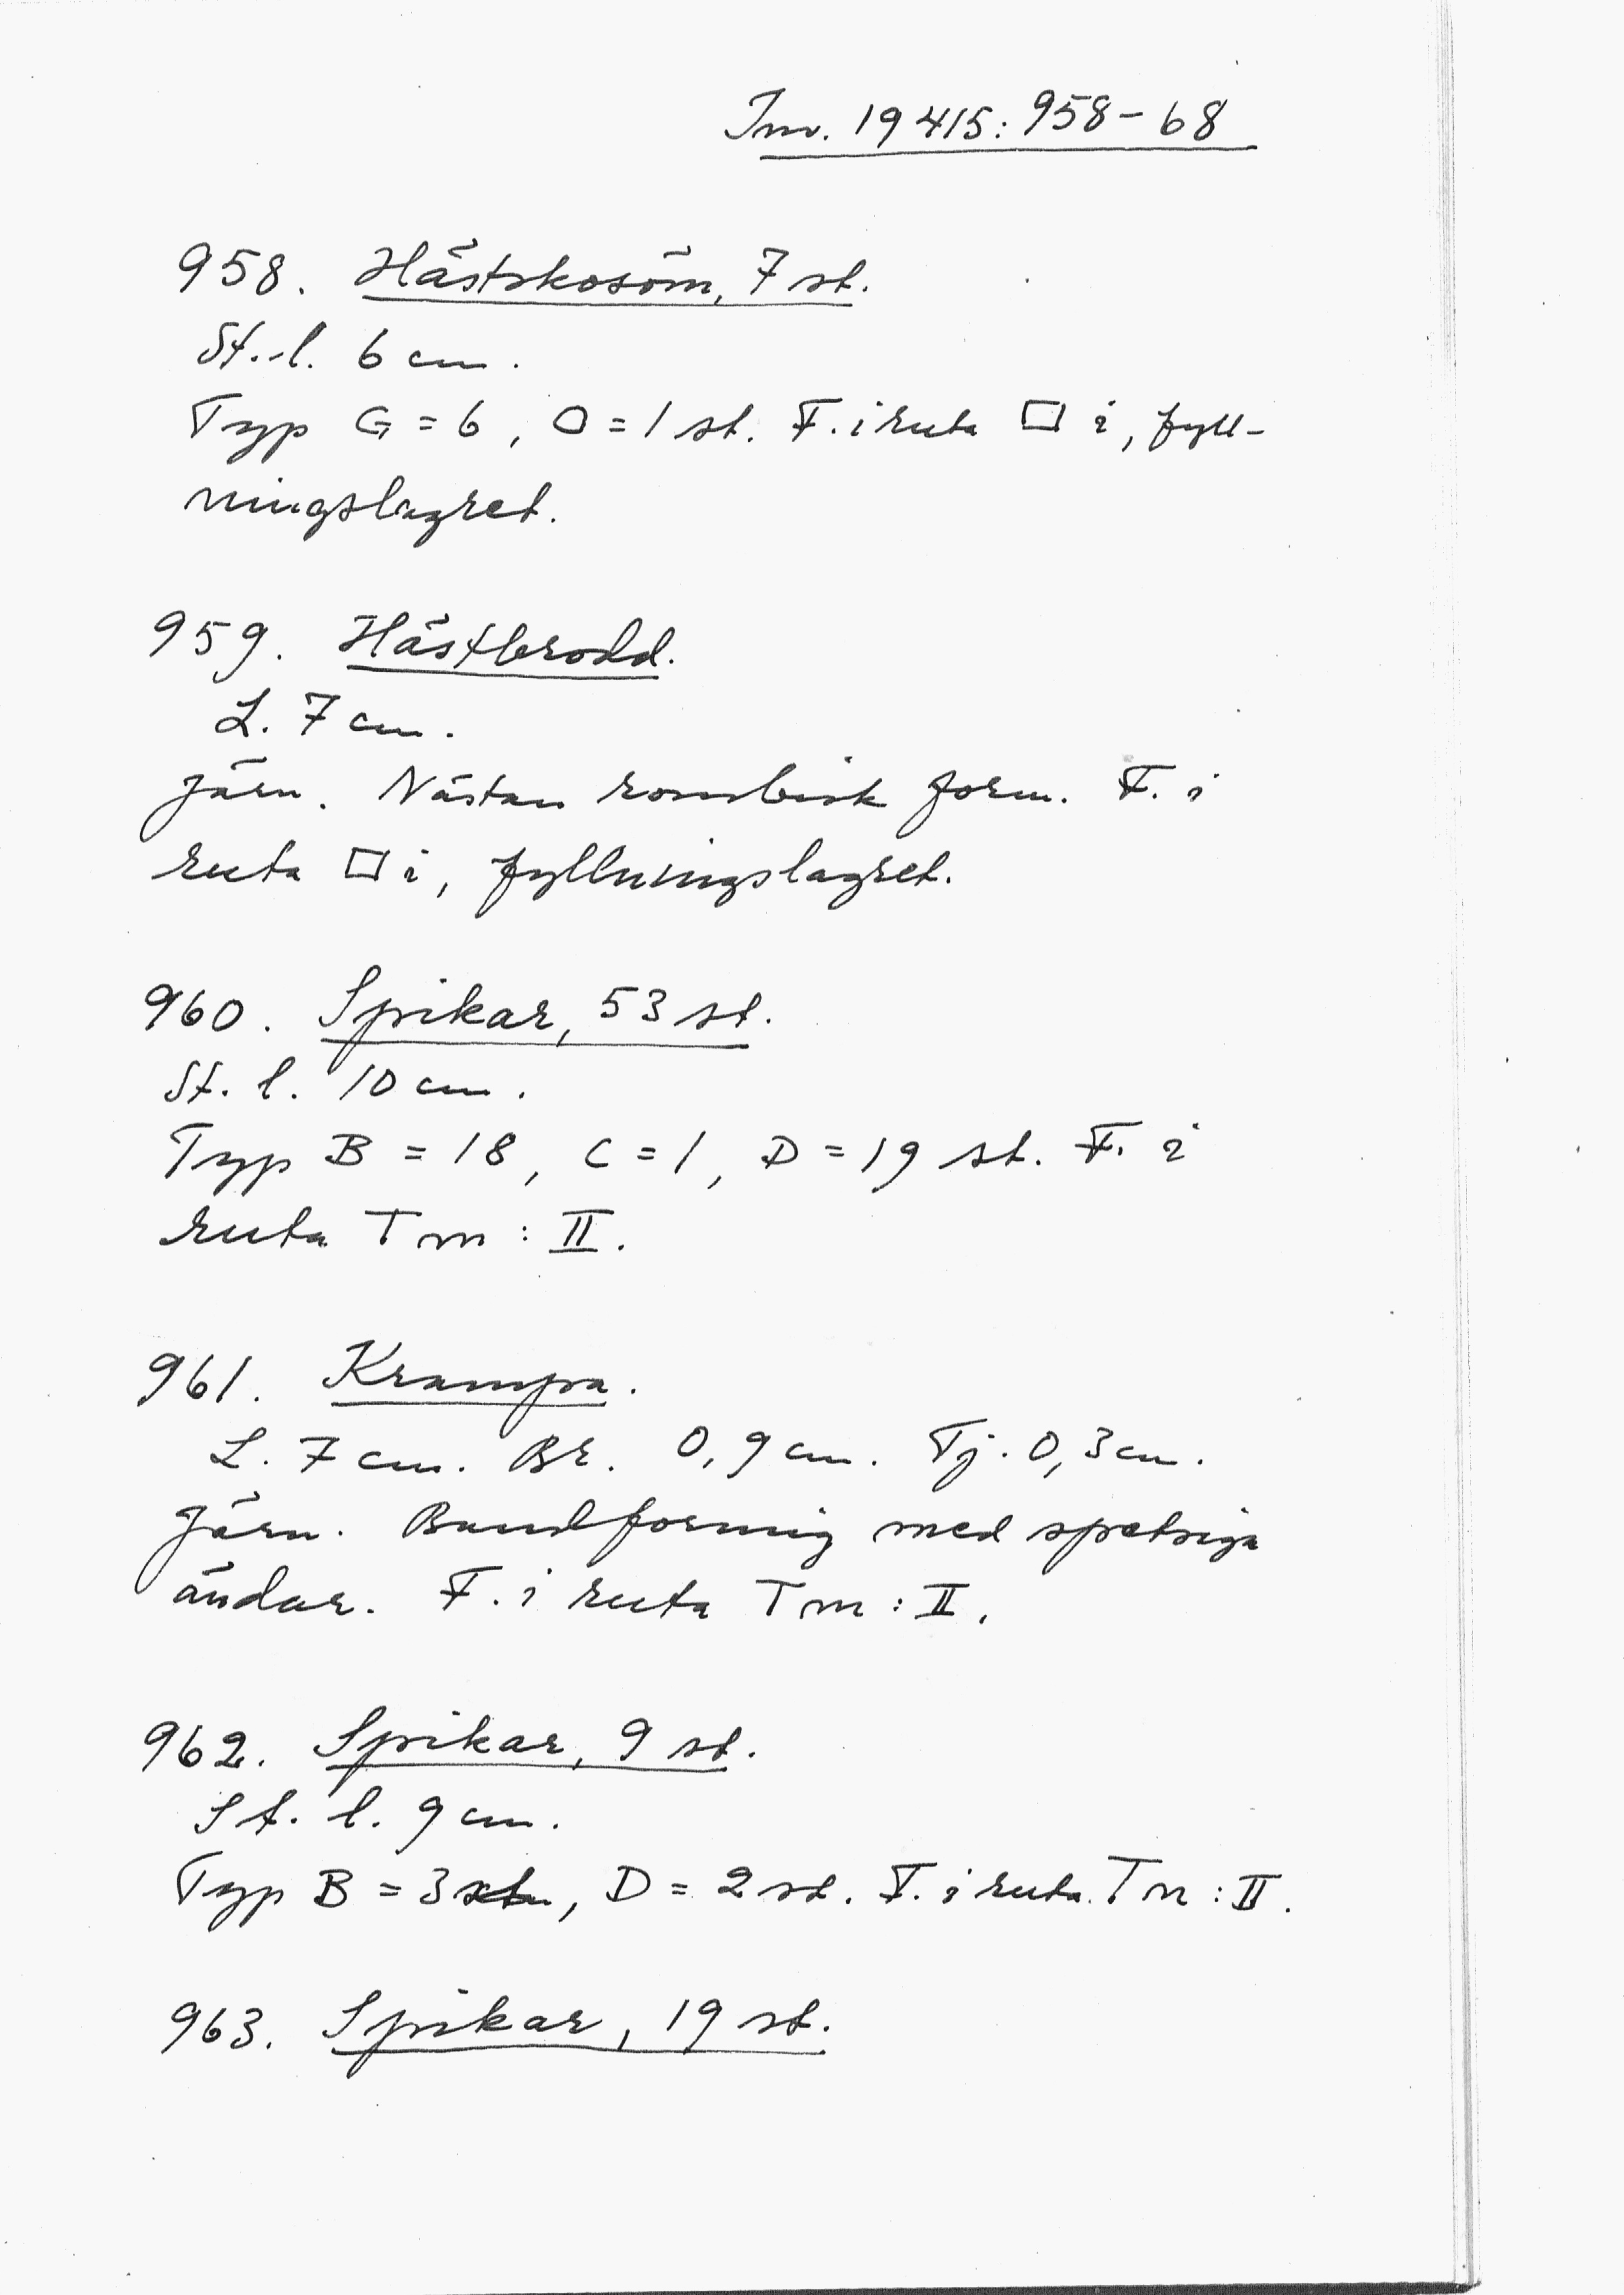 Inv. 19415:958-68
958. Hästskosöm, 7 st.
St.-l. 6 cm.
Typ G = 6, O = 1 st. F. i ruta □ i, fyll-
ningslagret.
959. Hästbrodd.
L. 7 cm.
Järn. Nästan rombisk form. F. i
ruta □ i, fyllningslagret.
960. Spikar, 53 st.
St. l. 10 cm.
Typ B = 18, C = 1, D = 19 st. F. i
ruta T m : II.
961. Krampa.
L. 7 cm. Br. 0,9 cm. Tj. 0,3 cm.
Järn. Bandformig med spetsiga
ändar. F. i ruta T m : II.
962. Spikar, 9 st.
St. l. 9 cm.
Typ B = 3, D = 2 st. F. i ruta T n : II.
963. Spikar, 19 st.